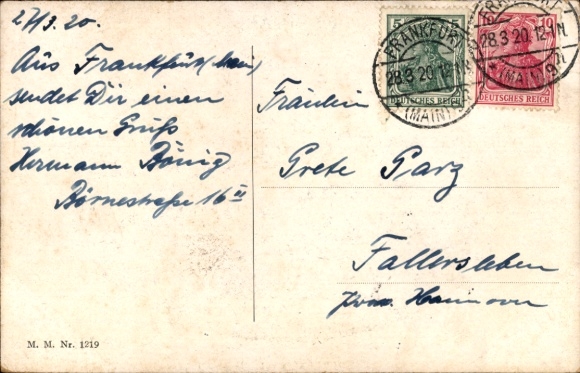 27/3.20.
Aus Frankfurt (Main)
sendet Dir einen
schönen Gruß
Hermann Bönig
Börnestraße 16 III
Fräulein
Grete Garz
Fallersleben
Prov. Hannover
5 5
DEUTSCHES REICH
10
DEUTSCHES REICH
FRANKFURT
28.3.20.12
(MAIN)
FRANKFURT
28.3.20.12-1N.
* (MAIN) 9
M. M. Nr. 1219